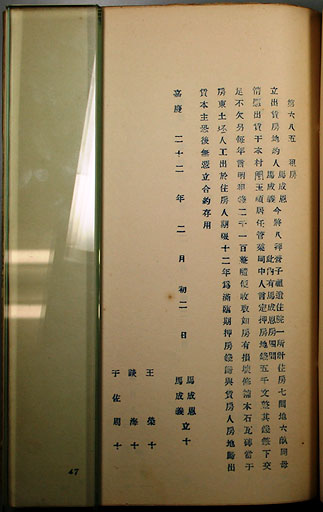 第六八五 租房
立出賃房地約人馬成恩馬成義今將八祥營子祖遺住院一所計住房七間地六畝因母
情愿出賃于本村關玉碩居住管業同中人言定押房地錢五千文整其錢筆下交
足不欠另每年言明租錢二千一百整隨便收取如房有損壞修舖木石瓦磚當于
房東土坯人工出於住房人期限十二年為滿臨期押房錢歸與賃房人房地歸出
賃本主恐後無憑立合約存用
嘉慶 二十二 年 二 月 初 二 日
馬成恩
馬成義 立十
王 榮十
談 海十
于佐周十
47